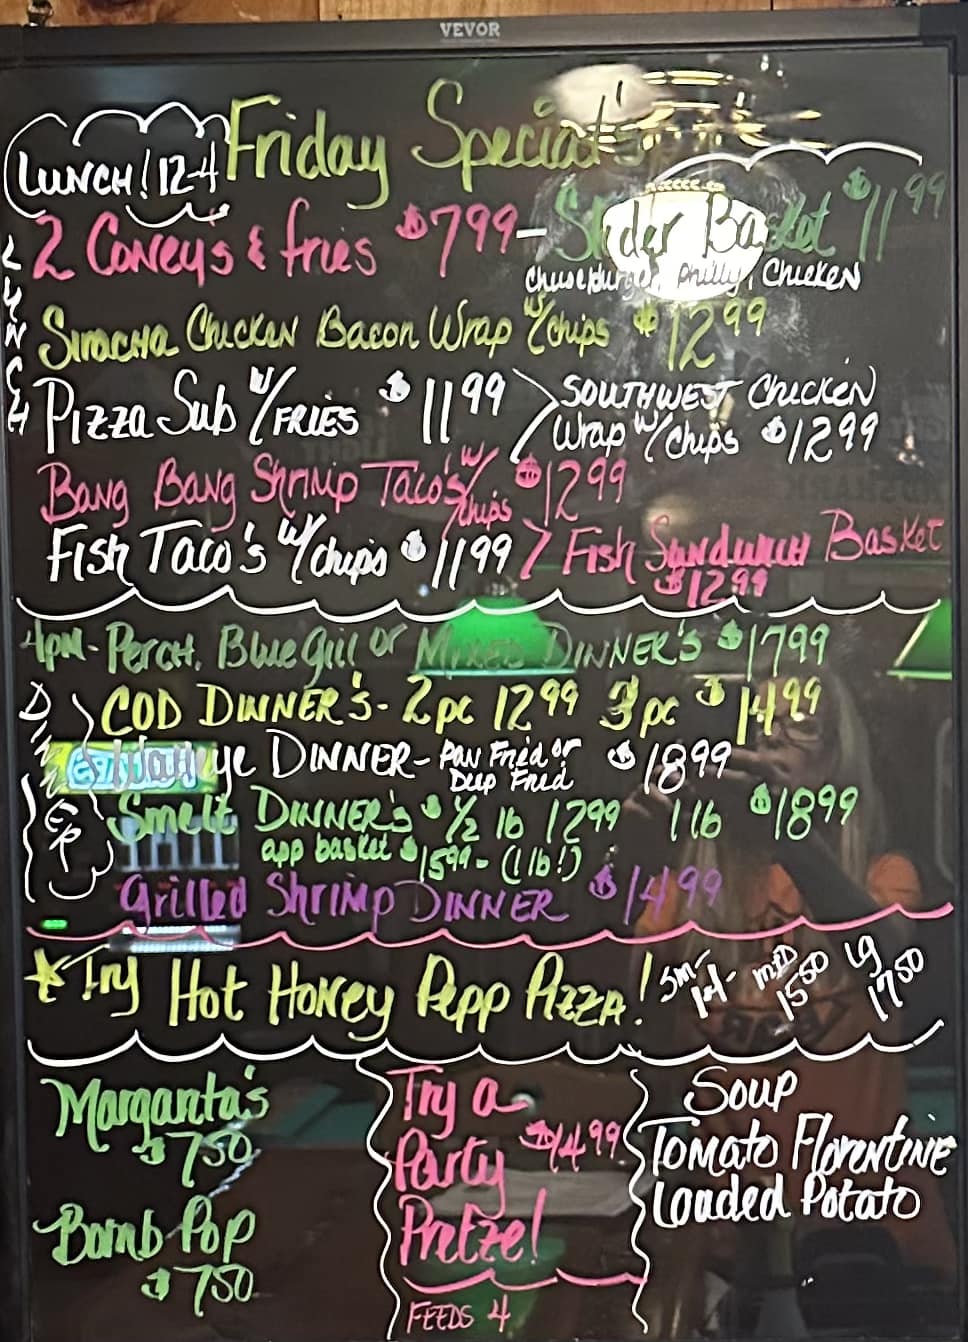 VEVOR
Friday Special's
LUNCH! 12-4
LUNCH
2 Coney's & fries $7.99 - Slider Basket $11.99
Cheeseburger, Philly, Chicken
Sriracha Chicken Bacon Wrap w/chips $12.99
Pizza Sub w/FRIES $11.99 > SOUTHWEST Chicken
Wrap w/chips $12.99
Bang Bang Shrimp Taco's w/chips $12.99
Fish Taco's w/chips $11.99 > Fish Sandwich Basket
$12.99
DINNER
4pm - Perch, Blue Gill or Mixed DINNER'S $17.99
COD DINNER'S - 2 pc 12.99 3 pc $14.99
Walleye DINNER - Pan Fried or $18.99
Deep Fried
Smelt DINNER'S $ 1/2 lb 12.99 1 lb $18.99
app basket $15.99 - (1 lb!)
Grilled Shrimp DINNER $14.99
Try Hot Honey Pepp Pizza! Sm- 14- MED 15.50 LG 17.50
Margarita's
$7.50
Bomb Pop
$7.50
Try a
Party $14.99
Pretzel
FEEDS 4
Soup
Tomato Florentine
Loaded Potato